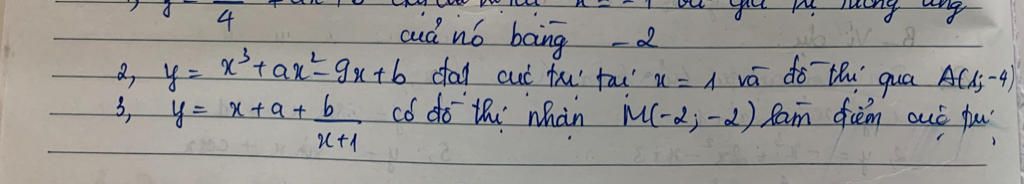 4
của nó bằng -2
2, y = x³ + ax² - 9x + b đạt cực trị tại x = 1 và đồ thị qua A(1; -4)
3, y = x + a + b/(x+1) có đồ thị nhận M(-2; -2) làm điểm cực trị